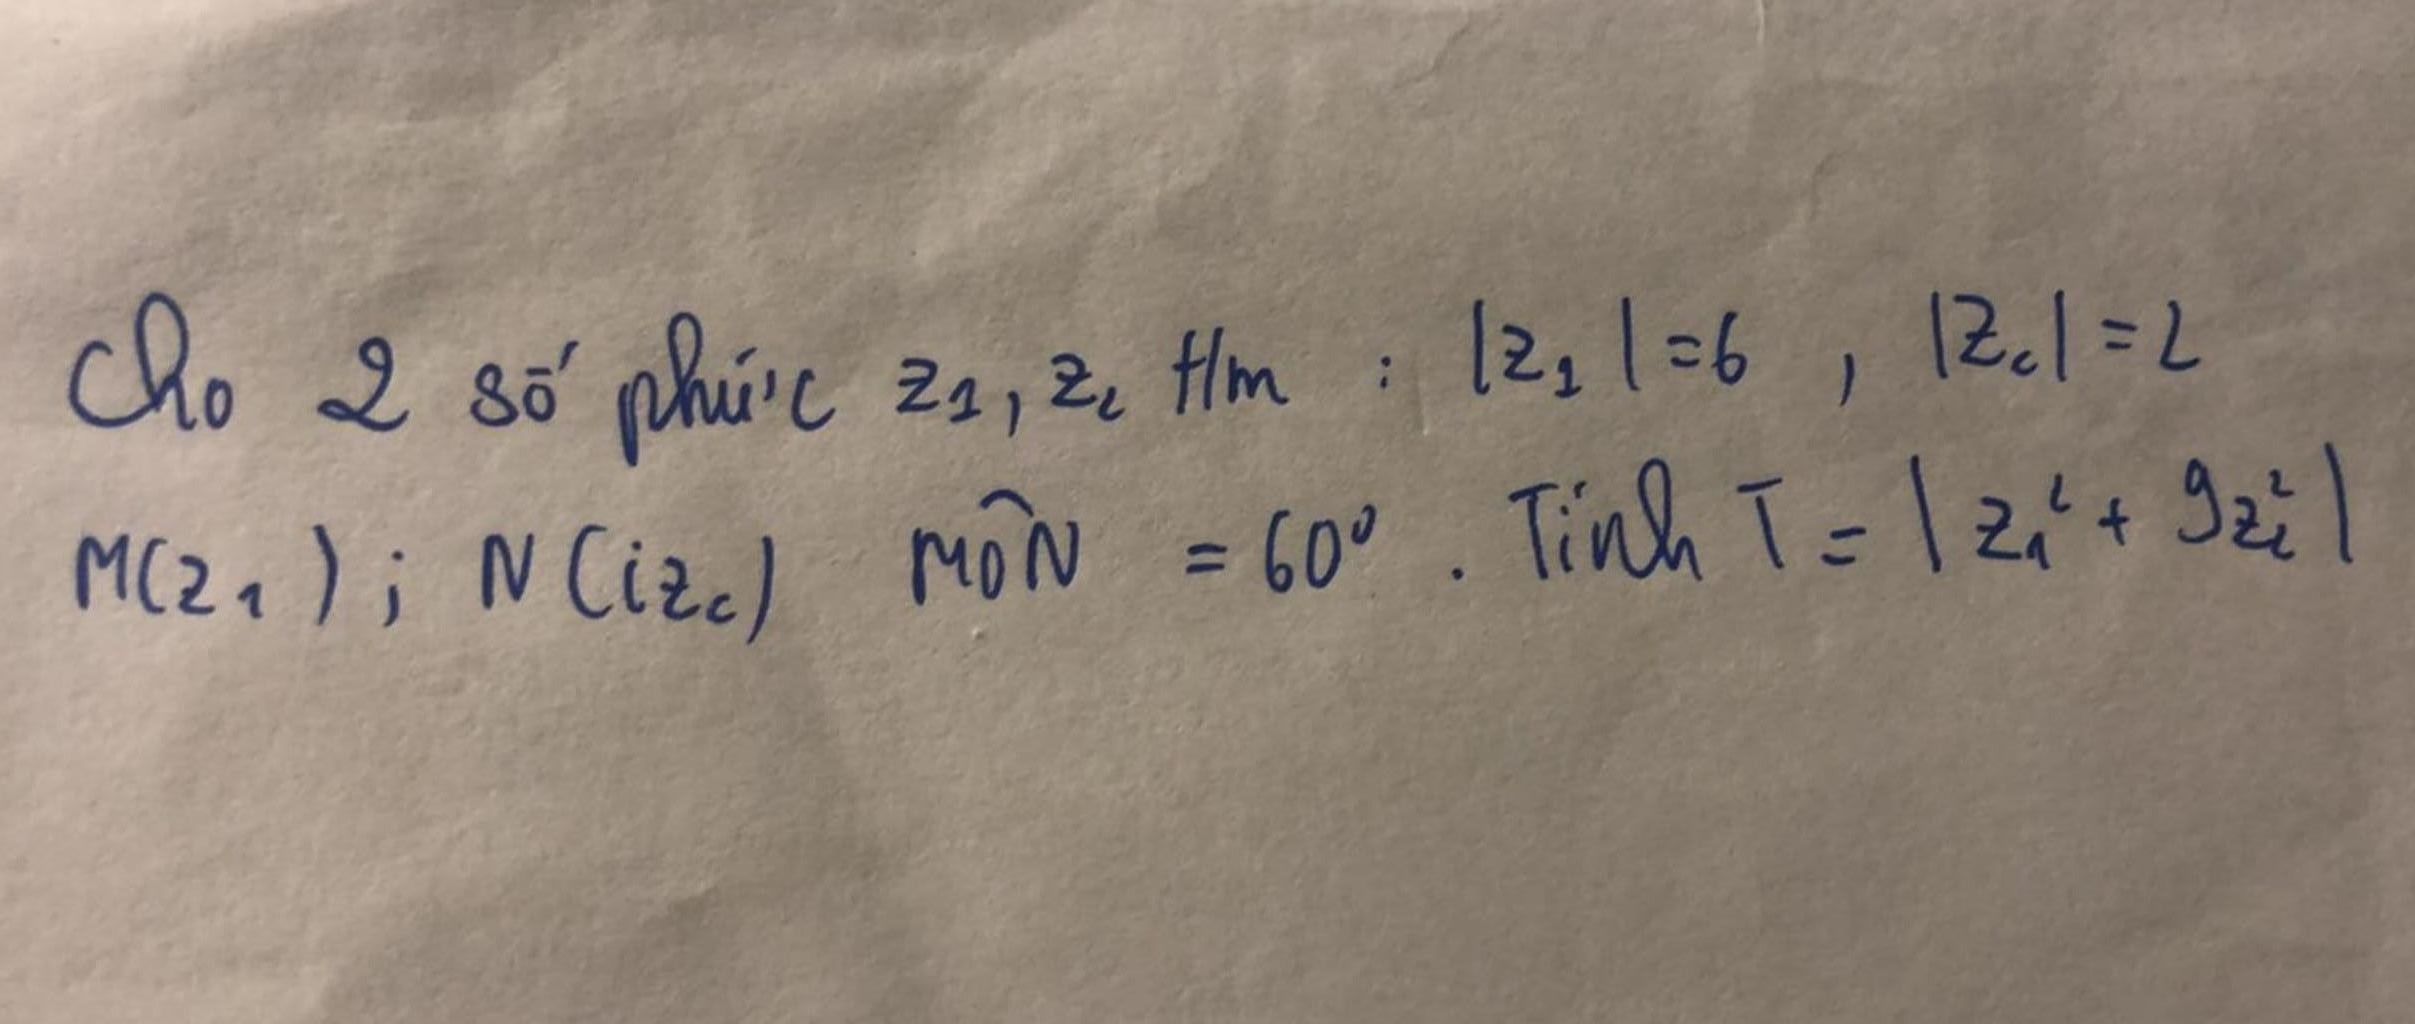 Cho 2 số phức z₁, z₂ t/m : |z₁| = 6 , |z₂| = 2
M(z₁) ; N(iz₂) MÔN = 60⁰ . Tính T = | z₁² + 9z₂² |